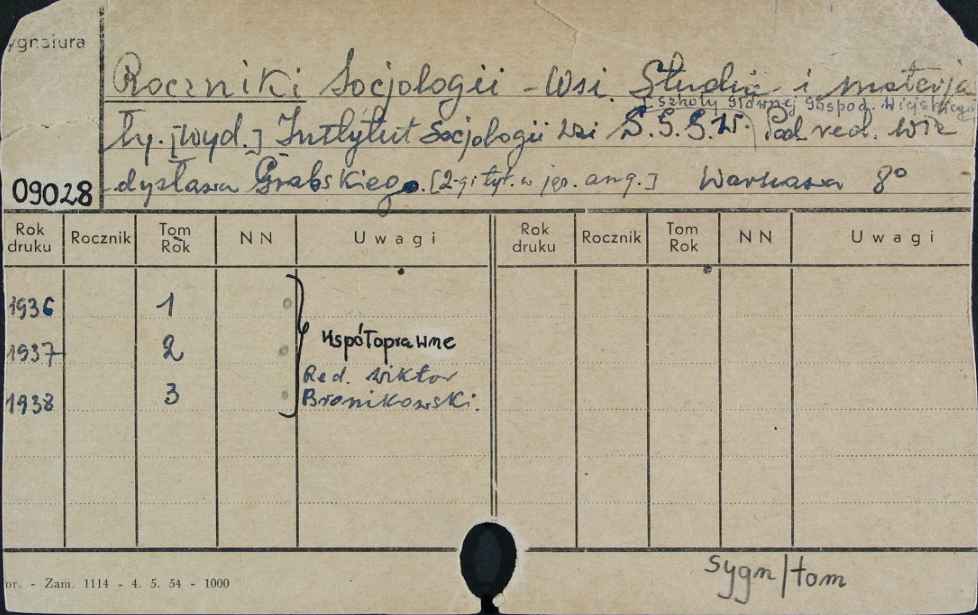 ygnatura
Roczniki Socjologii Wsi. Studia i materja
[Szkoły Głównej Gospod. Wiejskiej]
ły. [Wyd.] Instytut Socjologii Wsi S.G.G.W. Pod red. Wła
09028
dysława Grabskiego. [2-gi tyt. w jęz. ang.] Warszawa 8°
Rok druku Rocznik Tom Rok NN Uwagi Rok druku Rocznik Tom Rok NN Uwagi
1936 1
współoprawne
1937 2
Red. Wiktor
1938 3 Bronikowski.
sygn/tom
or. - Zam. 1114 - 4. 5. 54 - 1000